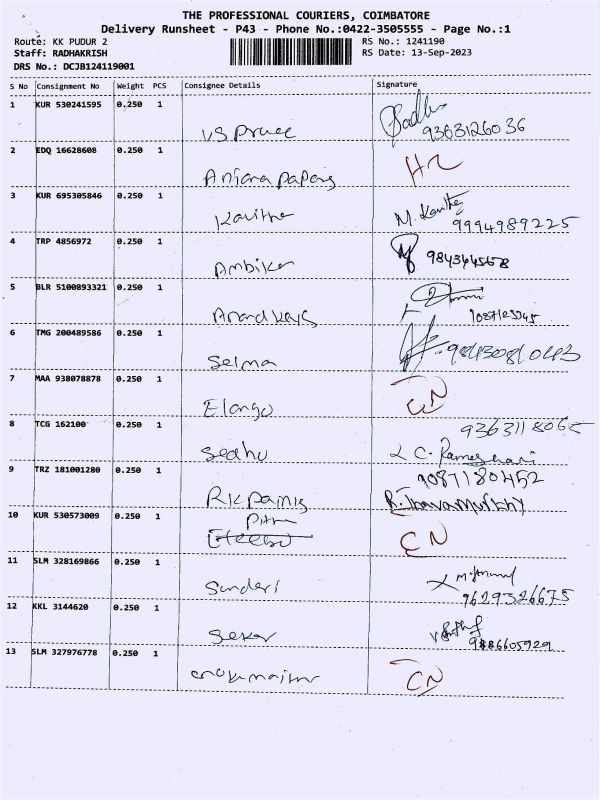 THE PROFESSIONAL COURIERS, COIMBATORE
Delivery Runsheet - P43 - Phone No.:0422-3505555 - Page No.:1
Route: KK PUDUR 2
RS No.: 1241190
Staff: RADHAKRISH
RS Date: 13-Sep-2023
DRS No.: DCJB124119001
S No Consignment No Weight PCS Consignee Details Signature
1 KUR 530241595 0.250 1
9363126036
2 EDQ 16628608 0.250 1
3 KUR 695305846 0.250 1
Kavitha
9994989225
4 TRP 4856972 0.250 1
Ambika
5 BLR 5100893321 0.250 1
6 TMG 200489586 0.250 1
Selma
7 MAA 938078878 0.250 1
Elango CN
8 TCG 162100 0.250 1
Sedhu
9 TRZ 181001280 0.250 1
9087180452
10 KUR 530573009 0.250 1
CN
11 SLM 328169866 0.250 1
Sunderi
9629326675
12 KKL 3144620 0.250 1
Seker
9486605929
13 SLM 327976778 0.250 1
CN